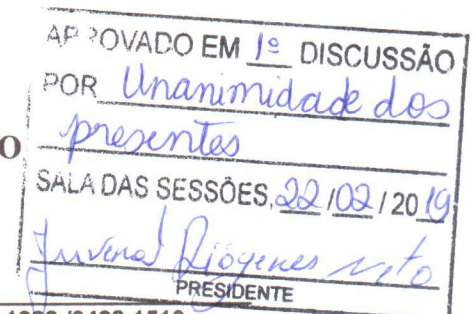 APROVADO EM 1º DISCUSSÃO
POR Unanimidade dos
presentes
O
SALA DAS SESSÕES, 22 / 02 / 20 19
Juvenal Diógenes Neto
PRESIDENTE